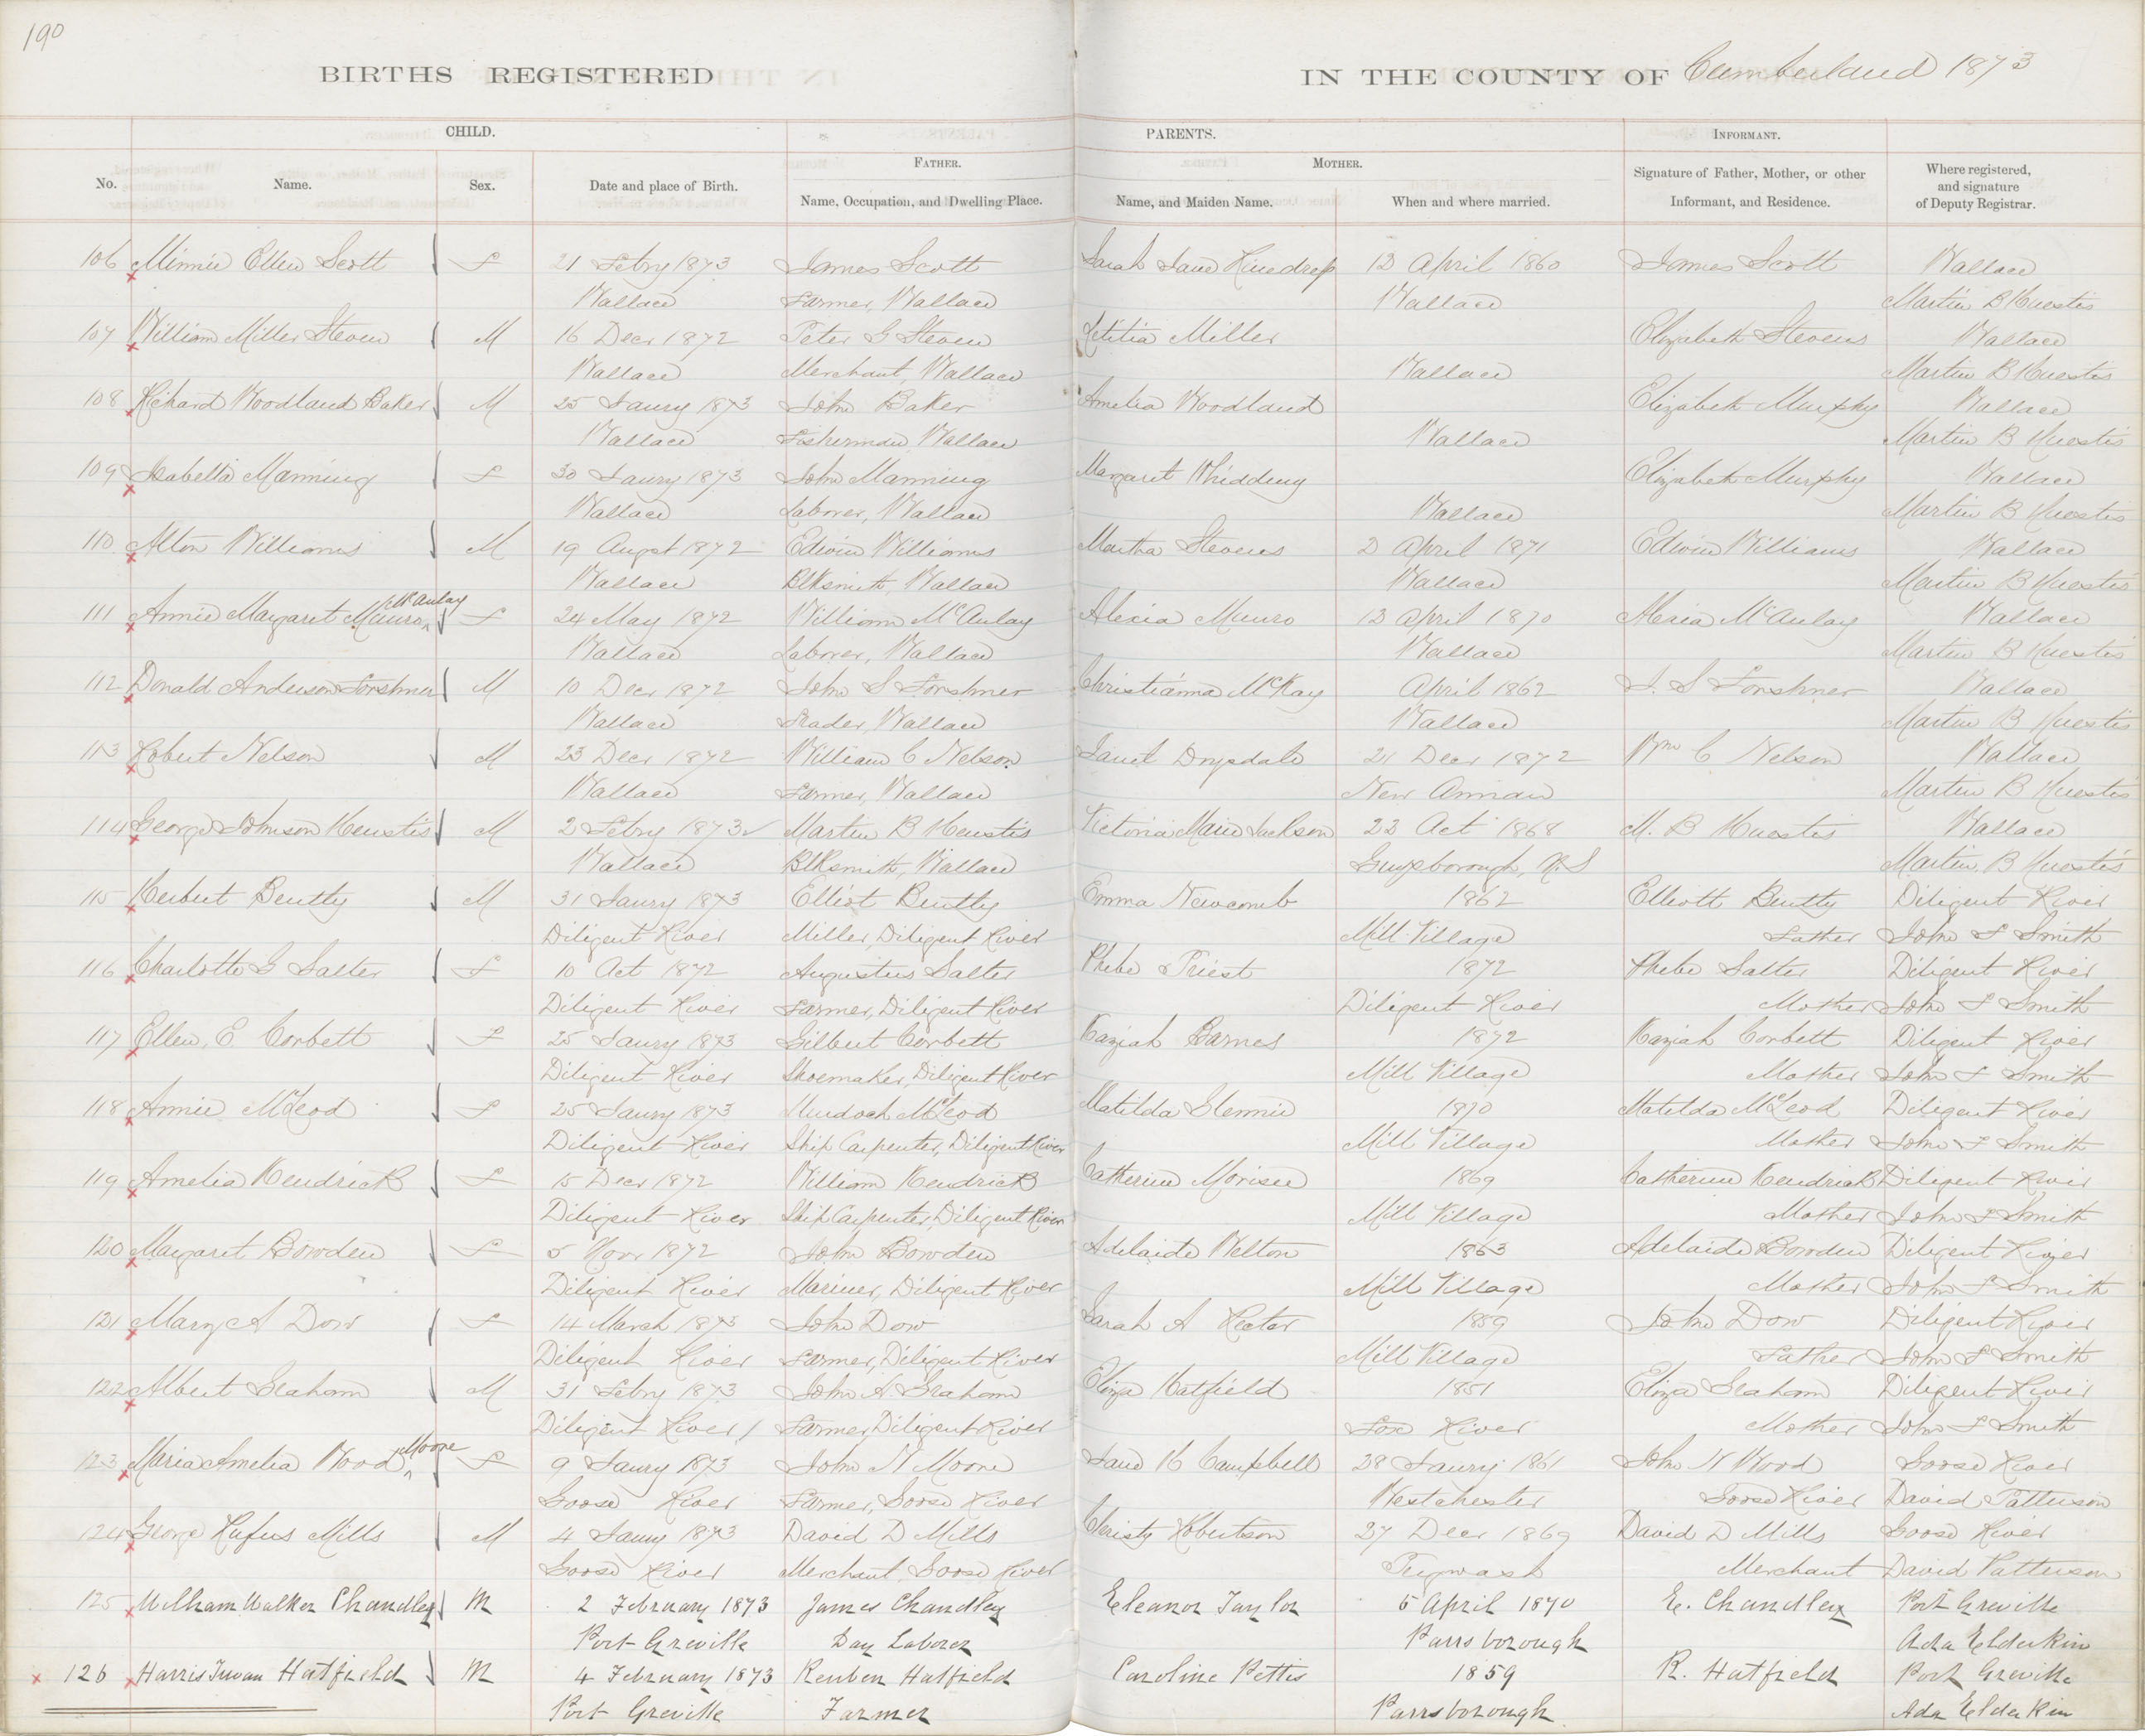 190
BIRTHS REGISTERED IN THE COUNTY OF Cumberland 1873
CHILD. PARENTS. INFORMANT.
FATHER. MOTHER.
No. Name. Sex. Date and place of Birth. Name, Occupation, and Dwelling Place. Name, and Maiden Name. When and where married. Signature of Father, Mother, or other Informant, and Residence. Where registered, and signature of Deputy Registrar.
106 Minnie Ellen Scott F 21 Febry 1873 James Scott Sarah Jane 13 April 1860 James Scott Wallace
Wallace Farmer, Wallace Wallace Martin B Huestis
107 William Miller Steven M 16 Decr 1872 Peter G Steven Letitia Miller Elizabeth Stevens Wallace
Wallace Merchant, Wallace Wallace Martin B Huestis
108 Richard Woodland Baker M 25 Jaury 1873 John Baker Amelia Woodland Elizabeth Murphy Wallace
Wallace Fisherman, Wallace Wallace Martin B Huestis
109 Isabella Manning F 30 Jaury 1873 John Manning Margaret Elizabeth Murphy Wallace
Wallace Laborer, Wallace Wallace Martin B Huestis
110 Alton Williams M 19 Augst 1872 Edwin Williams Martha Stevens 2 April 1871 Edwin Williams Wallace
Wallace Blksmith, Wallace Wallace Martin B Huestis
111 Annie Margaret Mauro McAulay F 24 May 1872 William McAulay Alexia Munro 13 April 1870 Alexia McAulay Wallace
Wallace Laborer, Wallace Wallace Martin B Huestis
112 Donald Anderson Forshner M 10 Decr 1872 John S Forshner Christianna McKay April 1862 J. S Forshner Wallace
Wallace Trader, Wallace Wallace Martin B Huestis
113 Robert Nelson M 23 Decr 1872 William C Nelson Janet Drysdale 21 Decr 1872 Wm C Nelson Wallace
Wallace Farmer, Wallace New Annan Martin B Huestis
114 George Johnson Heustis M 2 Febry 1873 Martin B Heustis Victoria Maria Jackson 22 Oct 1868 M. B Huestis Wallace
Wallace Blksmith, Wallace Guysborough, N.S Martin B Huestis
115 Herbert Bently M 31 Jaury 1873 Elliot Bently Emma Newcomb 1862 Elliott Bently Diligent River
Diligent River Miller, Diligent River Mill Village Father John F Smith
116 Charlotte G Salter F 10 Oct 1872 Augustus Salter Phebe Priest 1872 Phebe Salter Diligent River
Diligent River Farmer, Diligent River Diligent River Mother John F Smith
117 Ellen, E Corbett F 25 Jaury 1873 Gilbert Corbett Kaziah Barnes 1872 Kaziah Corbett Diligent River
Diligent River Shoemaker, Diligent River Mill Village Mother John F Smith
118 Annie McLeod F 25 Jaury 1873 Murdoch McLeod Matilda Glennie 1870 Matilda McLeod Diligent River
Diligent River Ship Carpenter, Diligent River Mill Village Mother John F Smith
119 Amelia Kendrick F 15 Decr 1872 William Kendrick Catherine Morisee 1869 Catherine Kendrick Diligent River
Diligent River Ship Carpenter, Diligent River Mill Village Mother John F Smith
120 Margaret Bowden F 5 Novr 1872 John Bowden Adelaide Welton 1863 Adelaide Bowden Diligent River
Diligent River Mariner, Diligent River Mill Village Mother John F Smith
121 Mary A Dow F 14 March 1873 John Dow Sarah A 1859 John Dow Diligent River
Diligent River Farmer, Diligent River Mill Village Father John F Smith
122 Albert Graham M 31 Febry 1873 John A Graham Eliza Hatfield 1851 Eliza Graham Diligent River
Diligent River Farmer, Diligent River Fox River Mother John F Smith
123 Maria Amelia Wood Moore F 9 Jaury 1873 John N Moore Jane H Campbell 28 Jaury 1861 John N Wood Goose River
Goose River Farmer, Goose River Westchester Goose River David Patterson
124 George Rufus Mills M 4 Jaury 1873 David D Mills Christy Robertson 27 Decr 1869 David D Mills Goose River
Goose River Merchant, Goose River Pugwash Merchant David Patterson
125 William Walker Chandley M 2 February 1873 James Chandley Eleanor Taylor 5 April 1870 E. Chandley Port Greville
Port Greville Day Laborer Parrsborough Ada Elderkin
126 Harris Hatfield M 4 February 1873 Reuben Hatfield Caroline Pettis 1859 R. Hatfield Port Greville
Port Greville Farmer Parrsborough Ada Elderkin